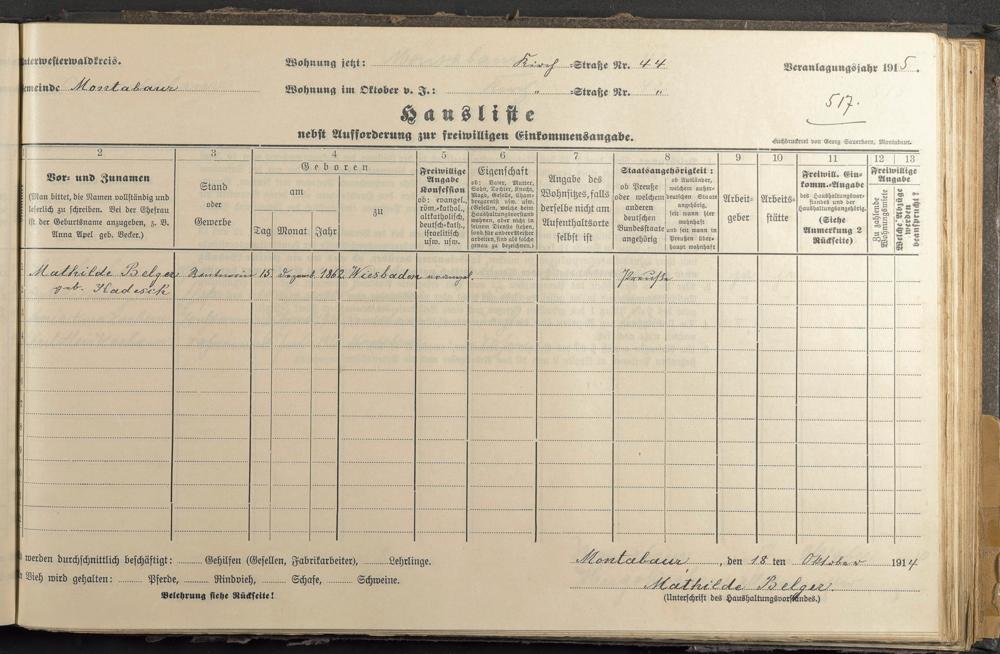 nterwesterwaldkreis.
Wohnung jetzt: Kirch =Straße Nr. 44
Veranlagungsjahr 1915.
meinde Montabaur
Wohnung im Oktober v. J.: " =Straße Nr. "
517.
Hausliste
nebst Aufforderung zur freiwilligen Einkommensangabe.
Buchdruckerei von Georg Sauerborn, Montabaur.
2 3 4 5 6 7 8 9 10 11 12 13
Vor- und Zunamen
(Man bittet, die Namen vollständig und
leserlich zu schreiben. Bei der Ehefrau
ist der Geburtsname anzugeben, z. B.
Anna Apel geb. Becker.)
Stand
oder
Gewerbe
Geboren
am
Tag Monat Jahr
zu
Freiwillige
Angabe
Konfession
ob: evangel.,
röm.-kathol.,
altkatholisch,
deutsch-kath.,
israelitisch
usw. usw.
Eigenschaft
ob: Vater, Mutter,
Sohn, Tochter, Knecht,
Magd, Geselle, Cham-
bregarnist usw. usw.
(Gesellen, welche beim
Haushaltungsvorstand
wohnen, aber nicht in
seinem Dienste stehen,
sond. für andere Meister
arbeiten, sind als solche
genau zu bezeichnen.)
Angabe des
Wohnsitzes, falls
derselbe nicht am
Aufenthaltsorte
selbst ist
Staatsangehörigkeit:
ob Preuße
oder welchem
anderen
deutschen
Bundesstaate
angehörig
ob Ausländer,
welchem außer-
deutschen Staate
angehörig,
seit wann hier
wohnhaft
und seit wann in
Preußen über-
haupt wohnhaft
Arbeit-
geber
Arbeits-
stätte
Freiwill. Ein-
komm.-Angabe
des Haushaltungsvor-
standes und der
Haushaltungsangehörig.
(Siehe
Anmerkung 2
Rückseite)
Freiwillige
Angabe
Zu zahlende
Wohnungsmiete
Welche Abzüge
werden
beansprucht?
Mathilde Belger Rentnerin 15. Dezemb. 1862 Wiesbaden evangel. Preuße
geb. Hadesck
werden durchschnittlich beschäftigt: Gehilfen (Gesellen, Fabrikarbeiter), Lehrlinge.
Montabaur, den 18 ten Oktober 1914
Vieh wird gehalten: Pferde, Rindvieh, Schafe, Schweine.
Mathilde Belger.
Belehrung siehe Rückseite!
(Unterschrift des Haushaltungsvorstandes.)